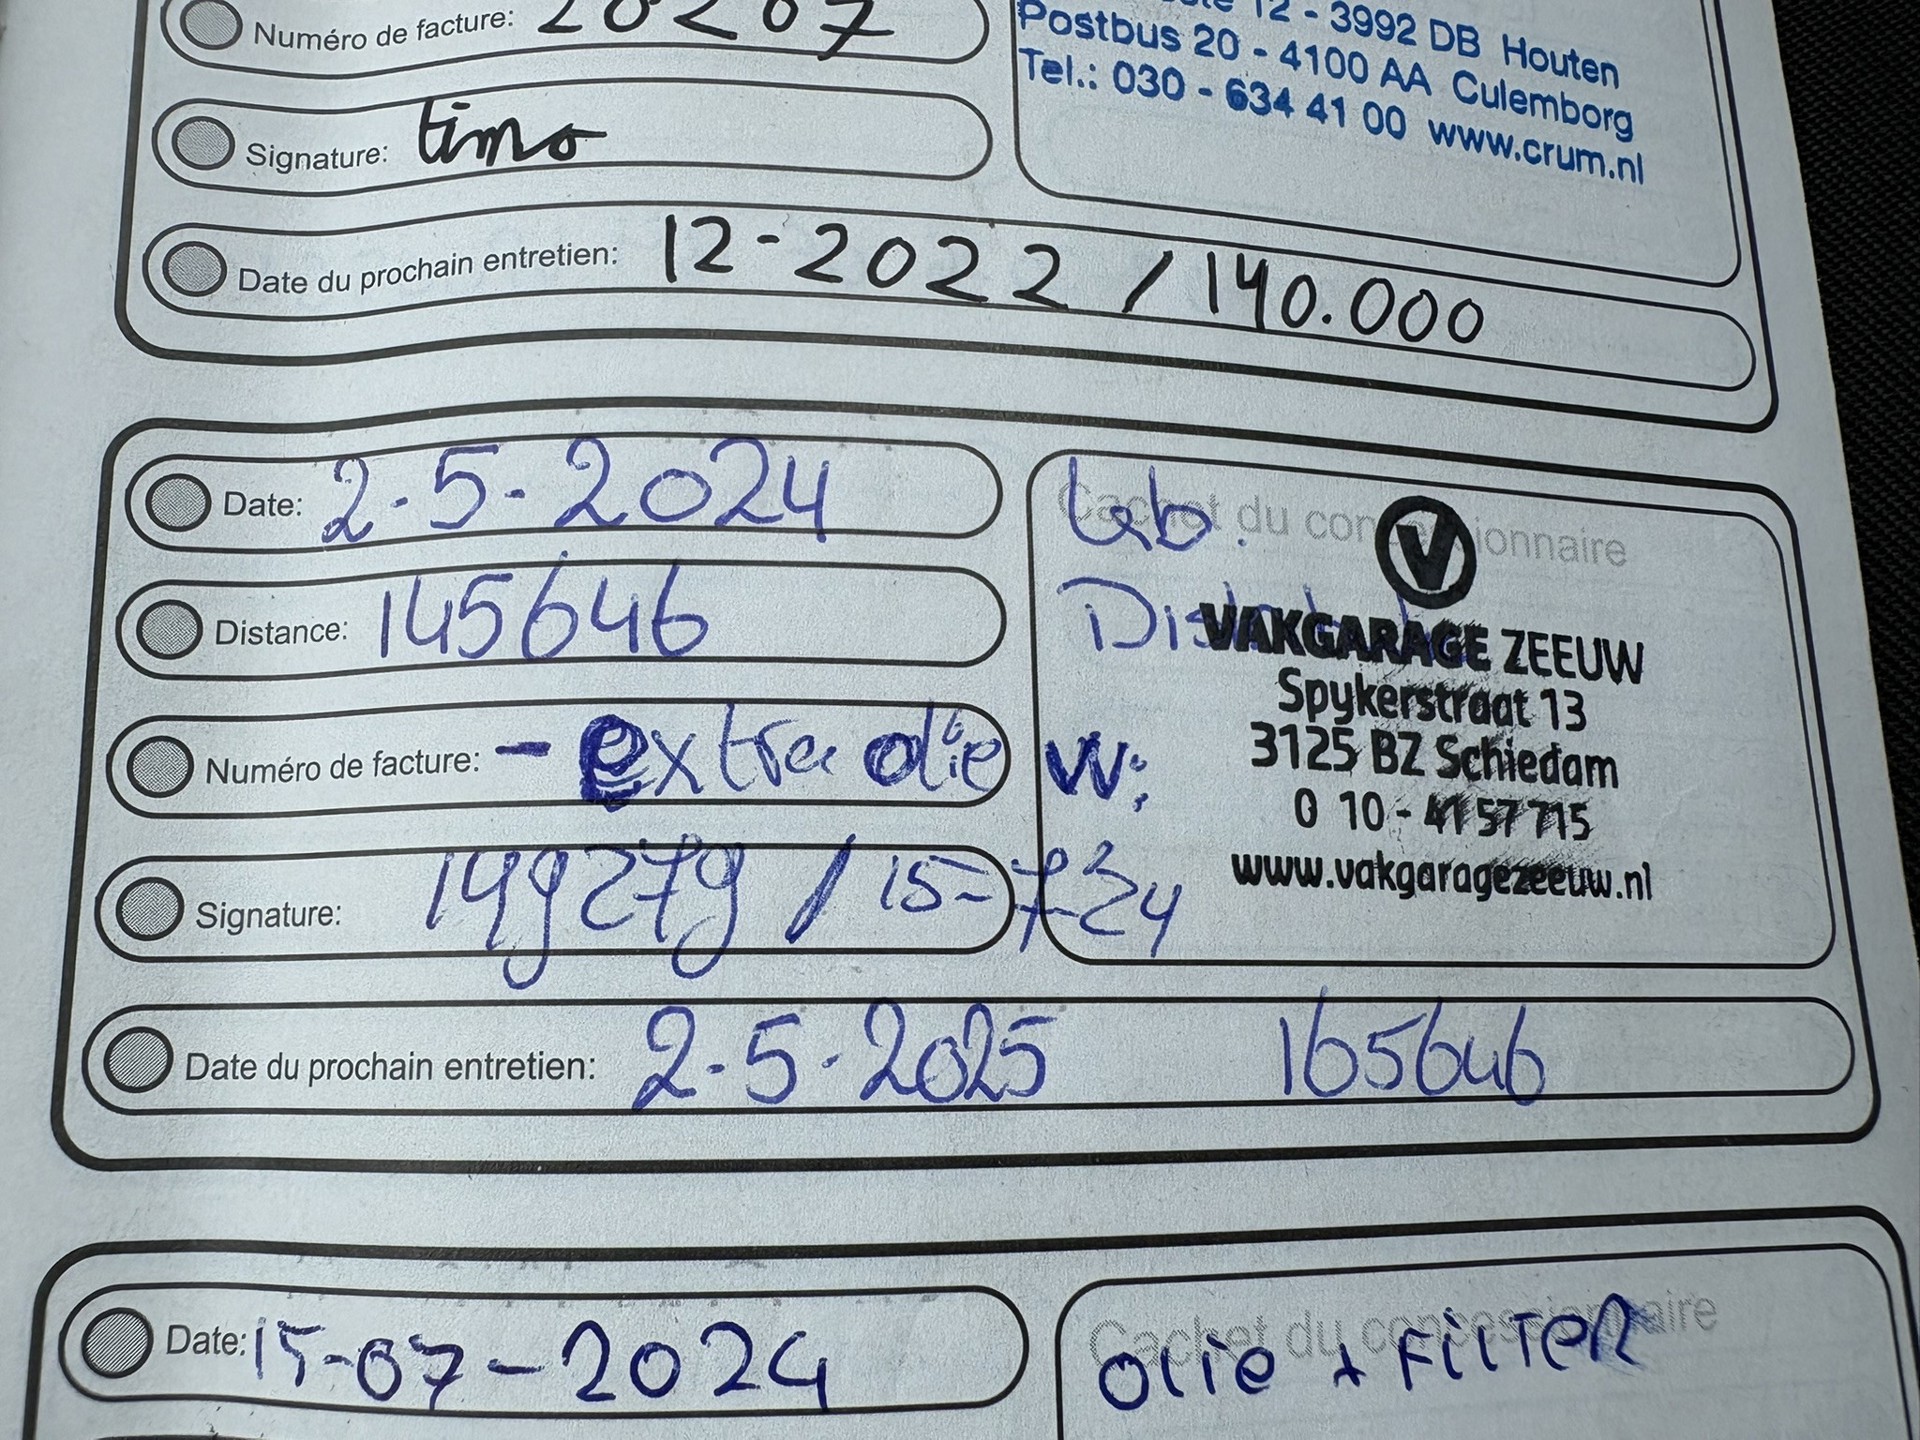 Numéro de facture: 20207
12 - 3992 DB Houten
Postbus 20 - 4100 AA Culemborg
Tel.: 030 - 634 41 00 www.crum.nl
Signature: timo
Date du prochain entretien: 12-2022 / 140.000
Date: 2-5-2024
Cachet du concessionnaire
Distance: 145646
VAKGARAGE ZEEUW
Spykerstraat 13
3125 BZ Schiedam
0 10 - 41 57 715
www.vakgaragezeeuw.nl
Numéro de facture: - extra olie w:
Signature: 149279 / 15-7-24
Date du prochain entretien: 2-5-2025 165646
Date: 15-07-2024
Cachet du concessionnaire
olie + FilTeR